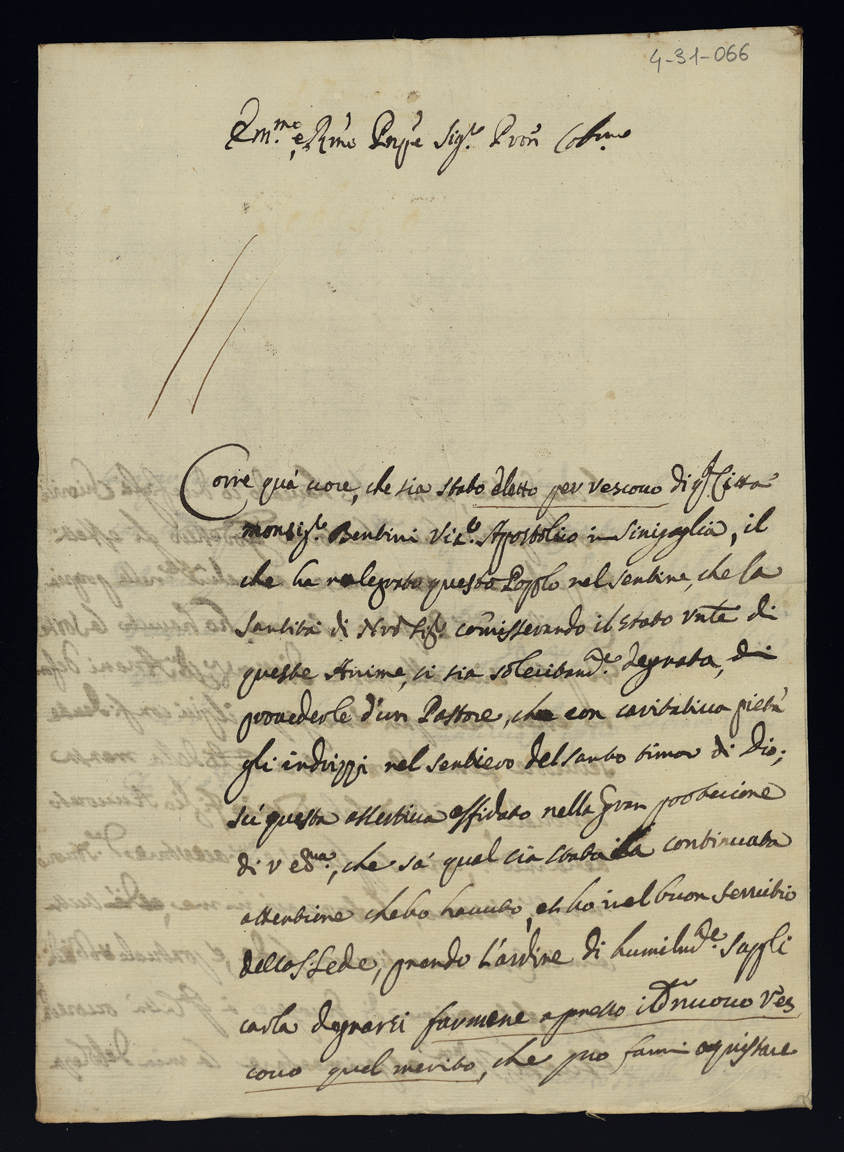 4-31-066
Em.mo e Rmo Pnpe Sig.r Pron Col.mo
Corre quà voce, che sia stato eletto per vescovo di q.a Città
monsig.r Bentini Vic.o Apostolico in Sinigaglia, il
che ha rallegrato questo Popolo nel sentire, che la
Santità di Nro Sig.re comiserando il stato di
queste Anime, si sia solecitam.te degnata, di
provederle d'un Pastore, che con caritativa pietà
gli indrizzi nel sentiero del santo timor di Dio;
sù questa assertiva affidato nella gran protecione
di V Em.za, che sà qual sia stata la continuata
attentione che ho havuto, et ho nel buon servitio
della S. Sede, prendo l'ardire di humilm.te suppli
carla degnarsi farmene apresso il d.o nuovo Ves
covo quel merito, che può farmi aquistare